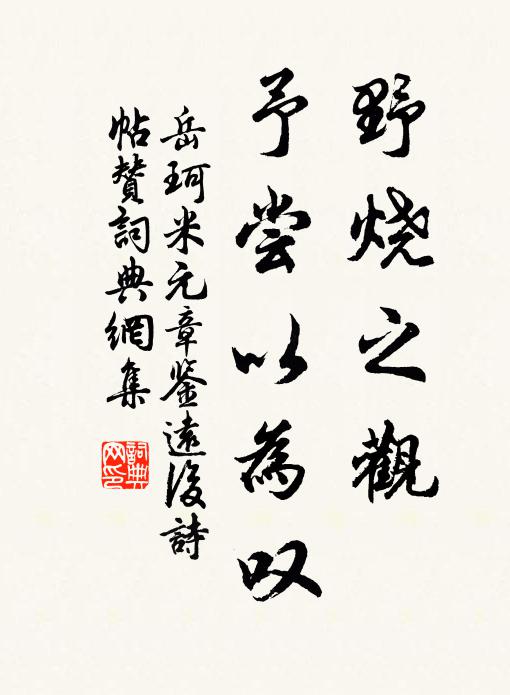 野烧之觀
予尝以為叹
岳珂米元章鉴遠後詩
帖贊詞典網集
詞典網印